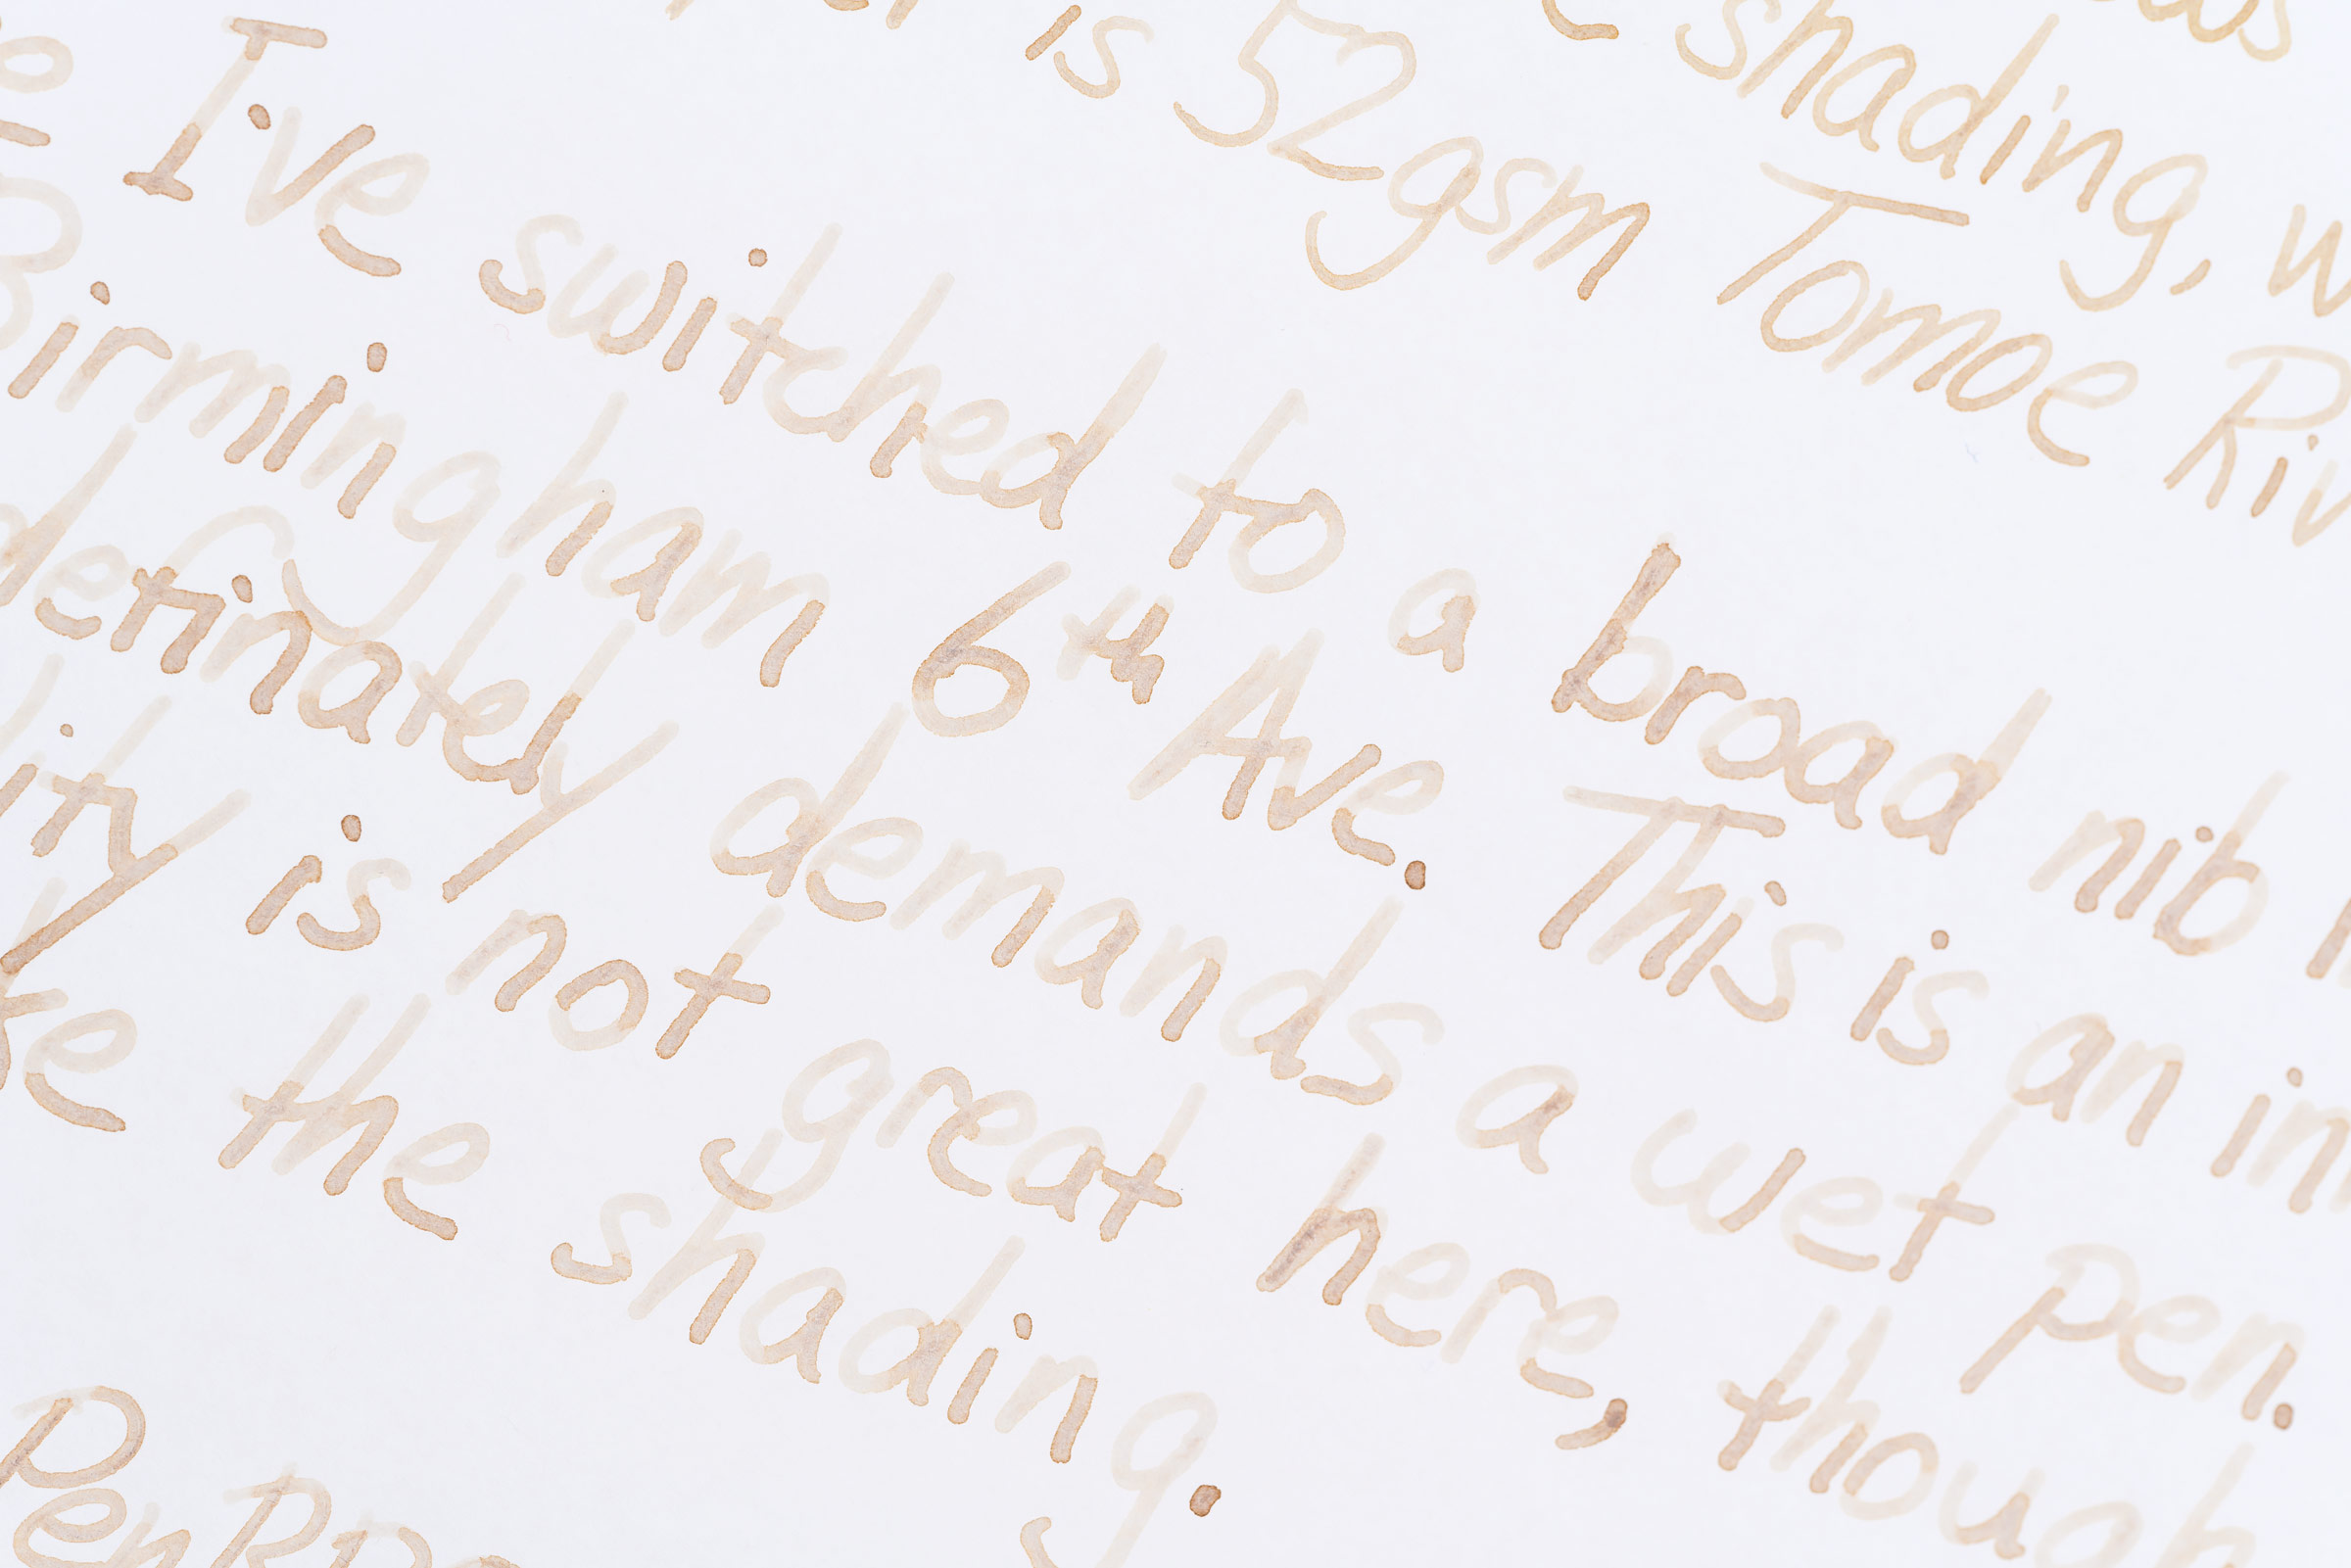 shading, w
is 52gsm Tomoe Riv
I've switched to a broad nib
Birmingham 6th Ave. This is an in
definately demands a wet pen.
lity is not great here, though
ke the shading.